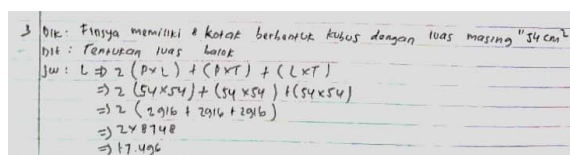 3 Dik : Finsya memiliki 8 kotak berbentuk kubus dengan luas masing" 54 cm²
Dit : Tentukan luas balok
Jw : L => 2 (PxL) + (PxT) + (LxT)
=> 2 (54x54) + (54x54) + (54x54)
=> 2 (2916 + 2916 + 2916)
=> 2x8748
=> 17.496